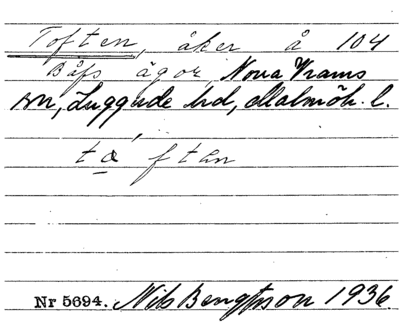 Toften, åker å 104
Båfs ägor, Norra Vrams
sn, Luggude hd, Malmöh. l.
tå´ftan
Nr 5694. Nils Bengtsson 1936.